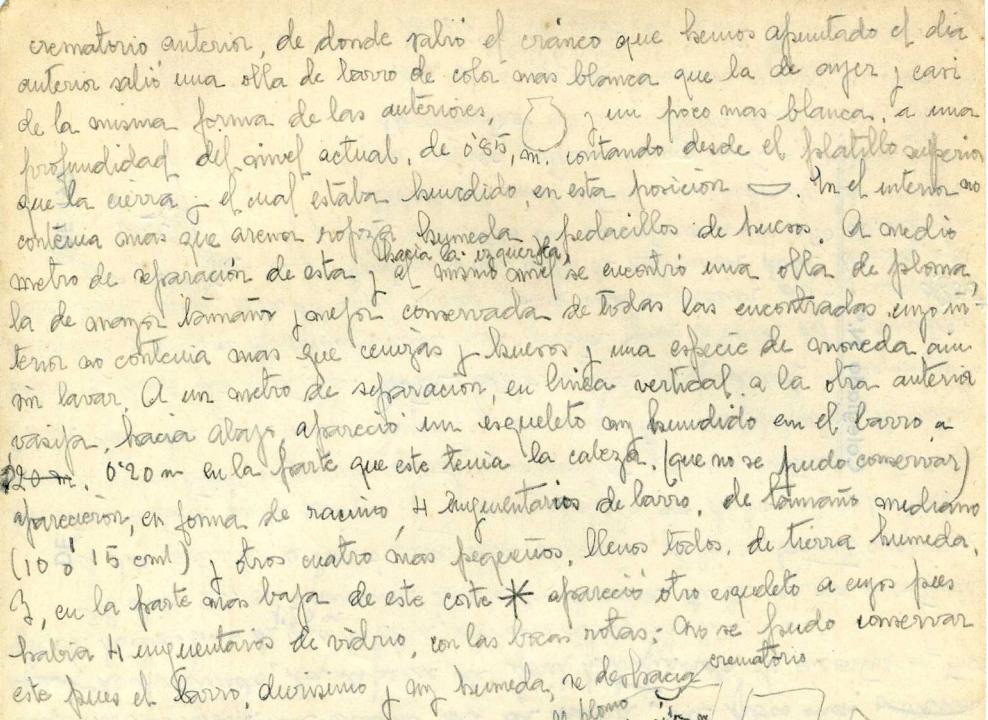 crematorio anterior, de donde salió el cráneo que hemos apuntado el dia
anterior salió una olla de barro de color mas blanca que la de ayer y casi
de la misma forma de las anteriores, y un poco mas blanca, a una
profundidad del nivel actual, de 0'85, m. contando desde el platillo superior
que la cierra y el cual estaba hundido, en esta posición. En el interior no
contenia mas que arenor rojiza humeda y pedacillos de huesos. A medio
metro de separación de esta y hacia la izquierda, al mismo nivel se encontró una olla de ploma,
la de mayor tamaño y mejor conservada de todas las encontradas cuyo in-
terior no contenia mas que cenizas y huesos y una especie de moneda aun
sin lavar. A un metro de separación, en linea vertical, a la otra anterior
vasija, hacia abajo, apareció un esqueleto muy hundido en el barro, a
0'20 m en la parte que este tenia la cabeza, (que no se pudo conservar)
aparecieron, en forma de racimo, 4 ungüentarios de barro, de tamaño mediano
(10 ó 15 cml) y otros cuatro mas pequeños, llenos todos, de tierra humeda.
Y, en la parte mas baja de este corte * apareció otro esqueleto a cuyos pies
habia 4 unguentarios de vidrio, con las bocas rotas; no se pudo conservar
este pues el barro, durisimo y muy humeda, se deshacia
crematorio
plomo